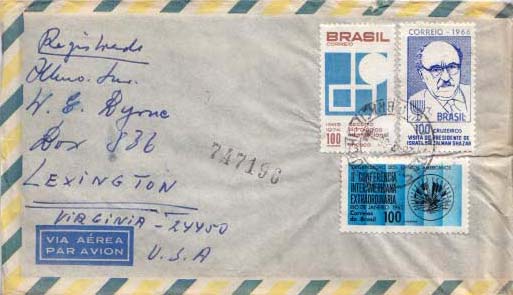 Registrado
Ilmo. Snr.
W. E. Byrne
Box 836
LEXINGTON
VIRGINIA - 24450
U.S.A
VIA AÉREA
PAR AVION
747196
BRASIL
CORREIO
1965
1974
100
CORREIO - 1966
BRASIL
100 CRUZEIROS
VISITA DO PRESIDENTE DE
ISRAEL SR. ZALMAN SHAZAR
II CONFERÊNCIA
INTERAMERICANA
EXTRAORDINÁRIA
RIO DE JANEIRO 1965
Correios
do Brasil
100